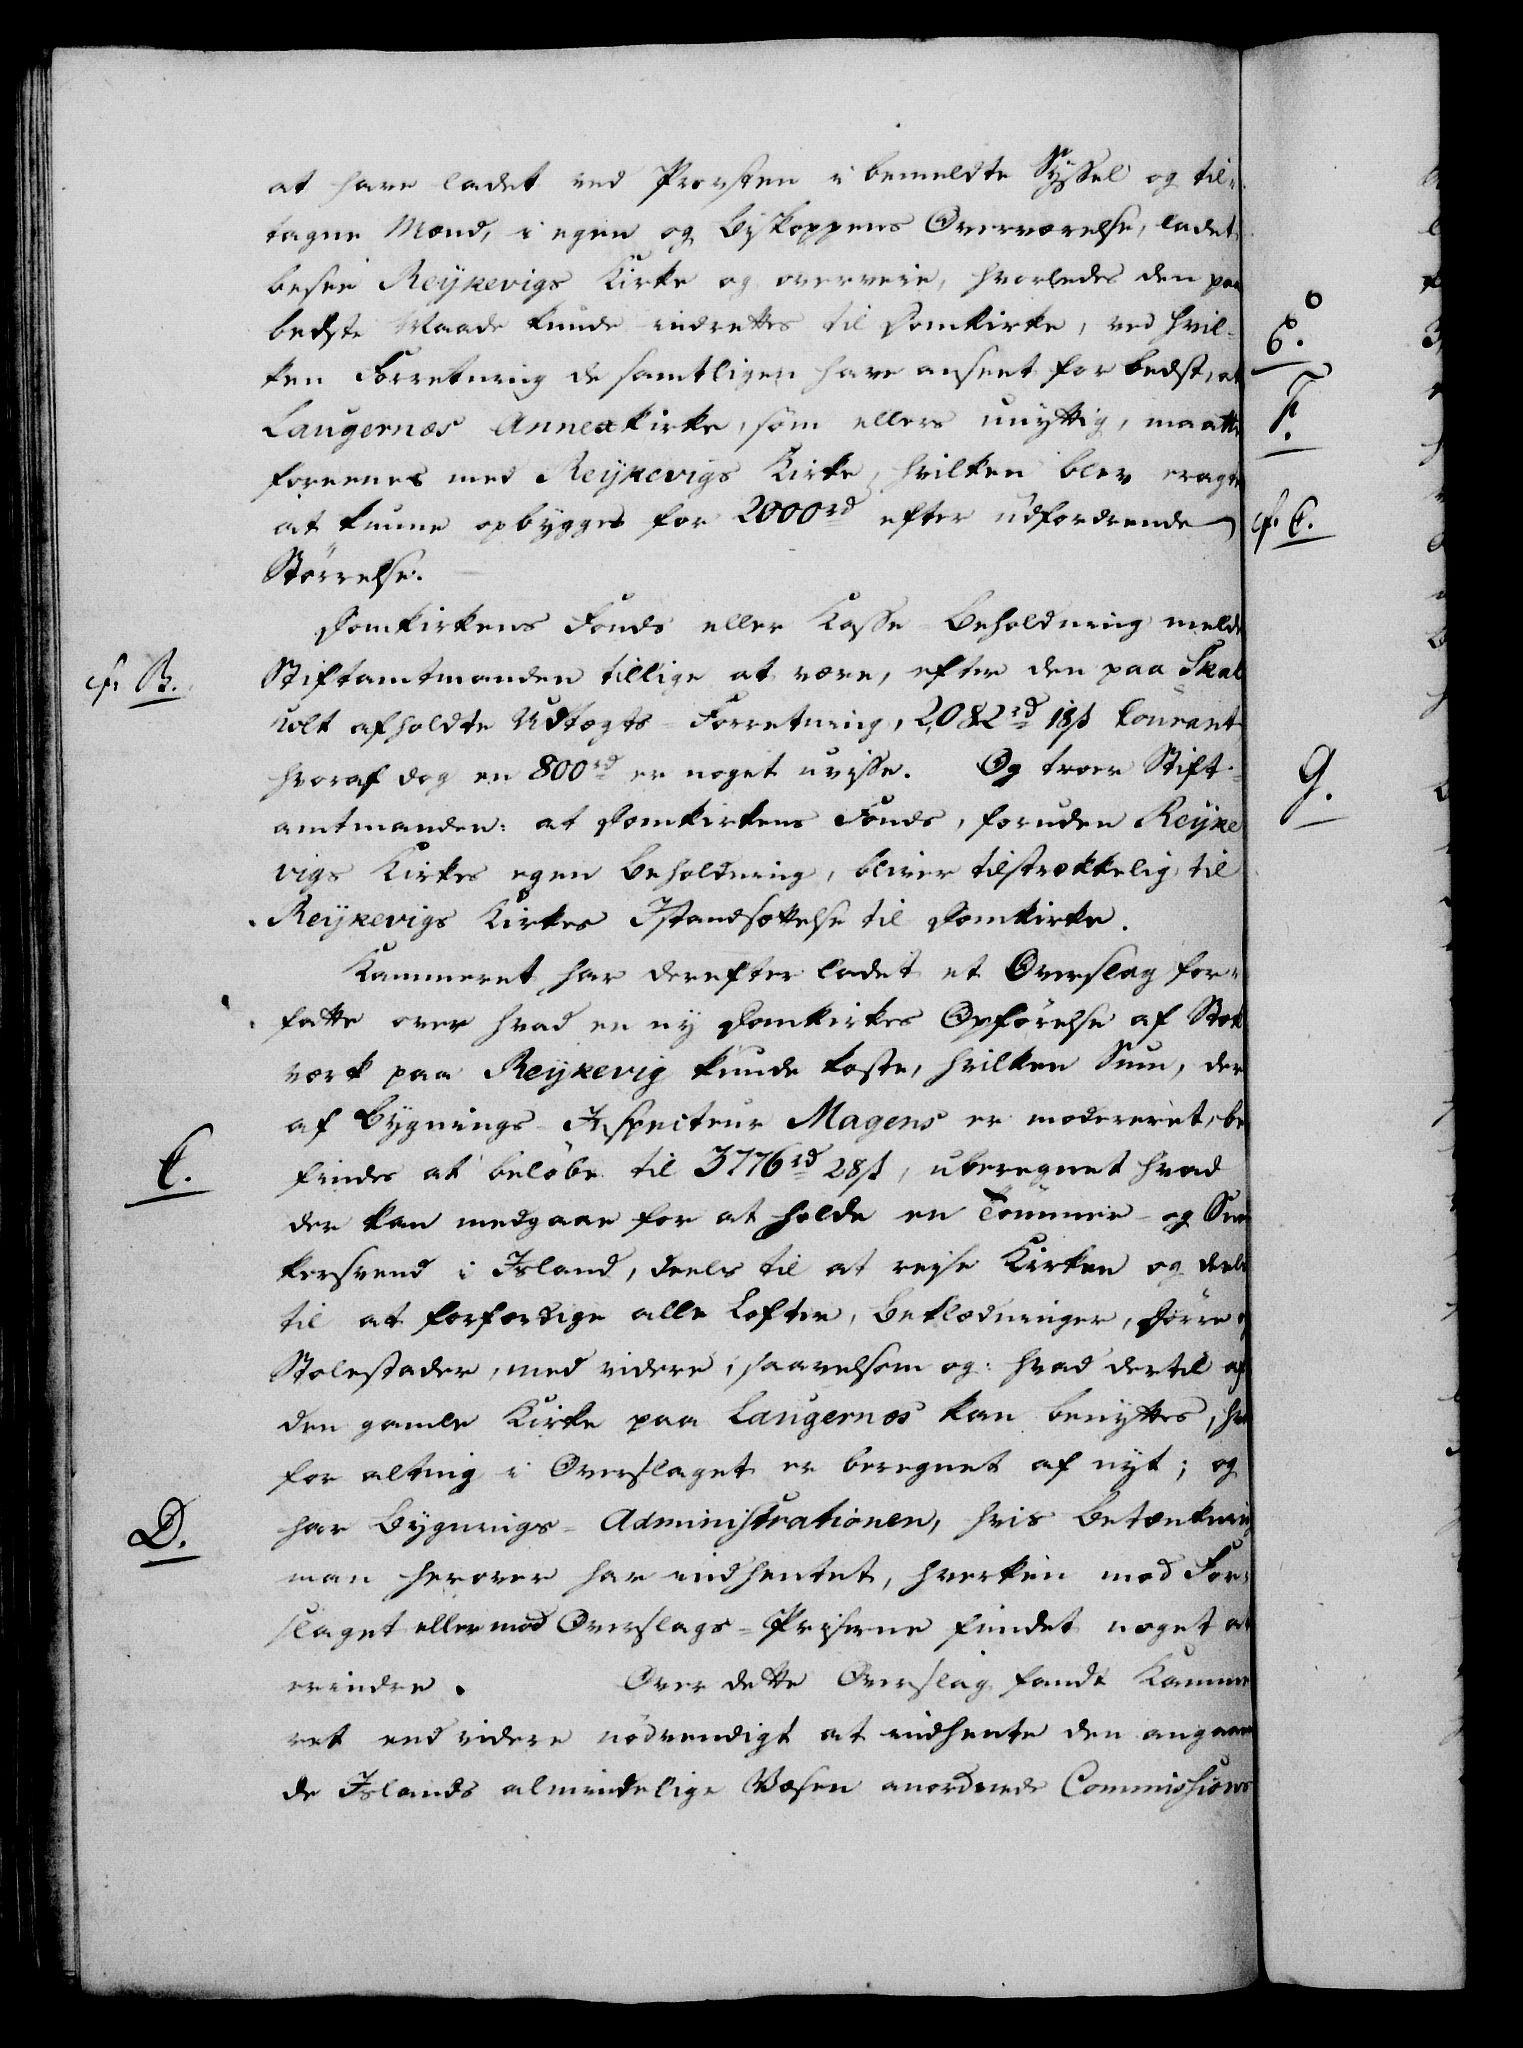 at have ladet ved Provsten i bemeldte Syssel og til-
tagne Mænd, i egen og Biskoppens Overværelse, ladet
besee Reykevigs Kirke og overveie, hvorledes den paa
bedste Maade kunde indrettes til Domkirke, ved hvil-
ken Forretning de samtligen have anseet for bedst, at
Laugernæs Annexkirke, som ellers unyttig, maatte
foreenes med Reykevigs Kirke, hvilken blev eragtet
at kunne opbygges for 2000 rd efter udfordrende
Størrelse.
Domkirkens Fonds eller Kasse-Beholdning melder
cfr B.
Stiftamtmanden tillige at være, efter den paa Skal
holt afholdte Udtægts-Forretning, 2,082 rd 18 s Courant
hvoraf dog en 800 rd er noget uvisse. Og troer Stift-
amtmanden: at Domkirkens Fonds, foruden Reyke
vigs Kirkes egen Beholdning, bliver tilstrækkelig til
Reykevigs Kirkes Istandsættelse til Domkirke.
Kammeret har derefter ladet et Overslag for-
fatte over hvad en ny Domkirkes Opførelse af Stok
værk paa Reykevig kunde koste, hvilken Sum, der
af Bygnings-Inspecteur Magens er modereret, be
C.
findes at beløbe til 3776 rd 28 s, uberegnet hvad
der kan medgaae for at holde en Tømmer- og Sne
kersvend i Island, deels til at reise Kirken og deels
til at forfærdige alle Lofter, Beklædninger, Dørre og
Stolestader, med videre, saavelsom og: hvad dertil af
den gamle Kirke paa Laugernæs kan benyttes,
for alting i Overslaget er beregnet af nyt; og
D.
har Bygnings-Administrationen, hvis Betænkning
man herover har indhentet, hverken mod For-
slaget eller mod Overslags-Priserne fundet noget at
erindre. Over dette Overslag fandt Kamme
ret end videre nødvendigt at indhente den angaaen
de Islands almindelige Væsen anordnede Commissions
E.
F.
cfr C.
G.